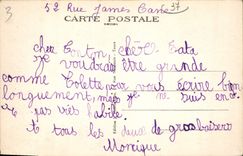 3 52 Rue James Cane 37
CARTE POSTALE
cher Tonton, chère Tata
je voudrais être grande
comme Colette pour vous écrire bien
longuement, mais je ne suis encore
pas très habile.
A tous les deux de gros baisers
Monique